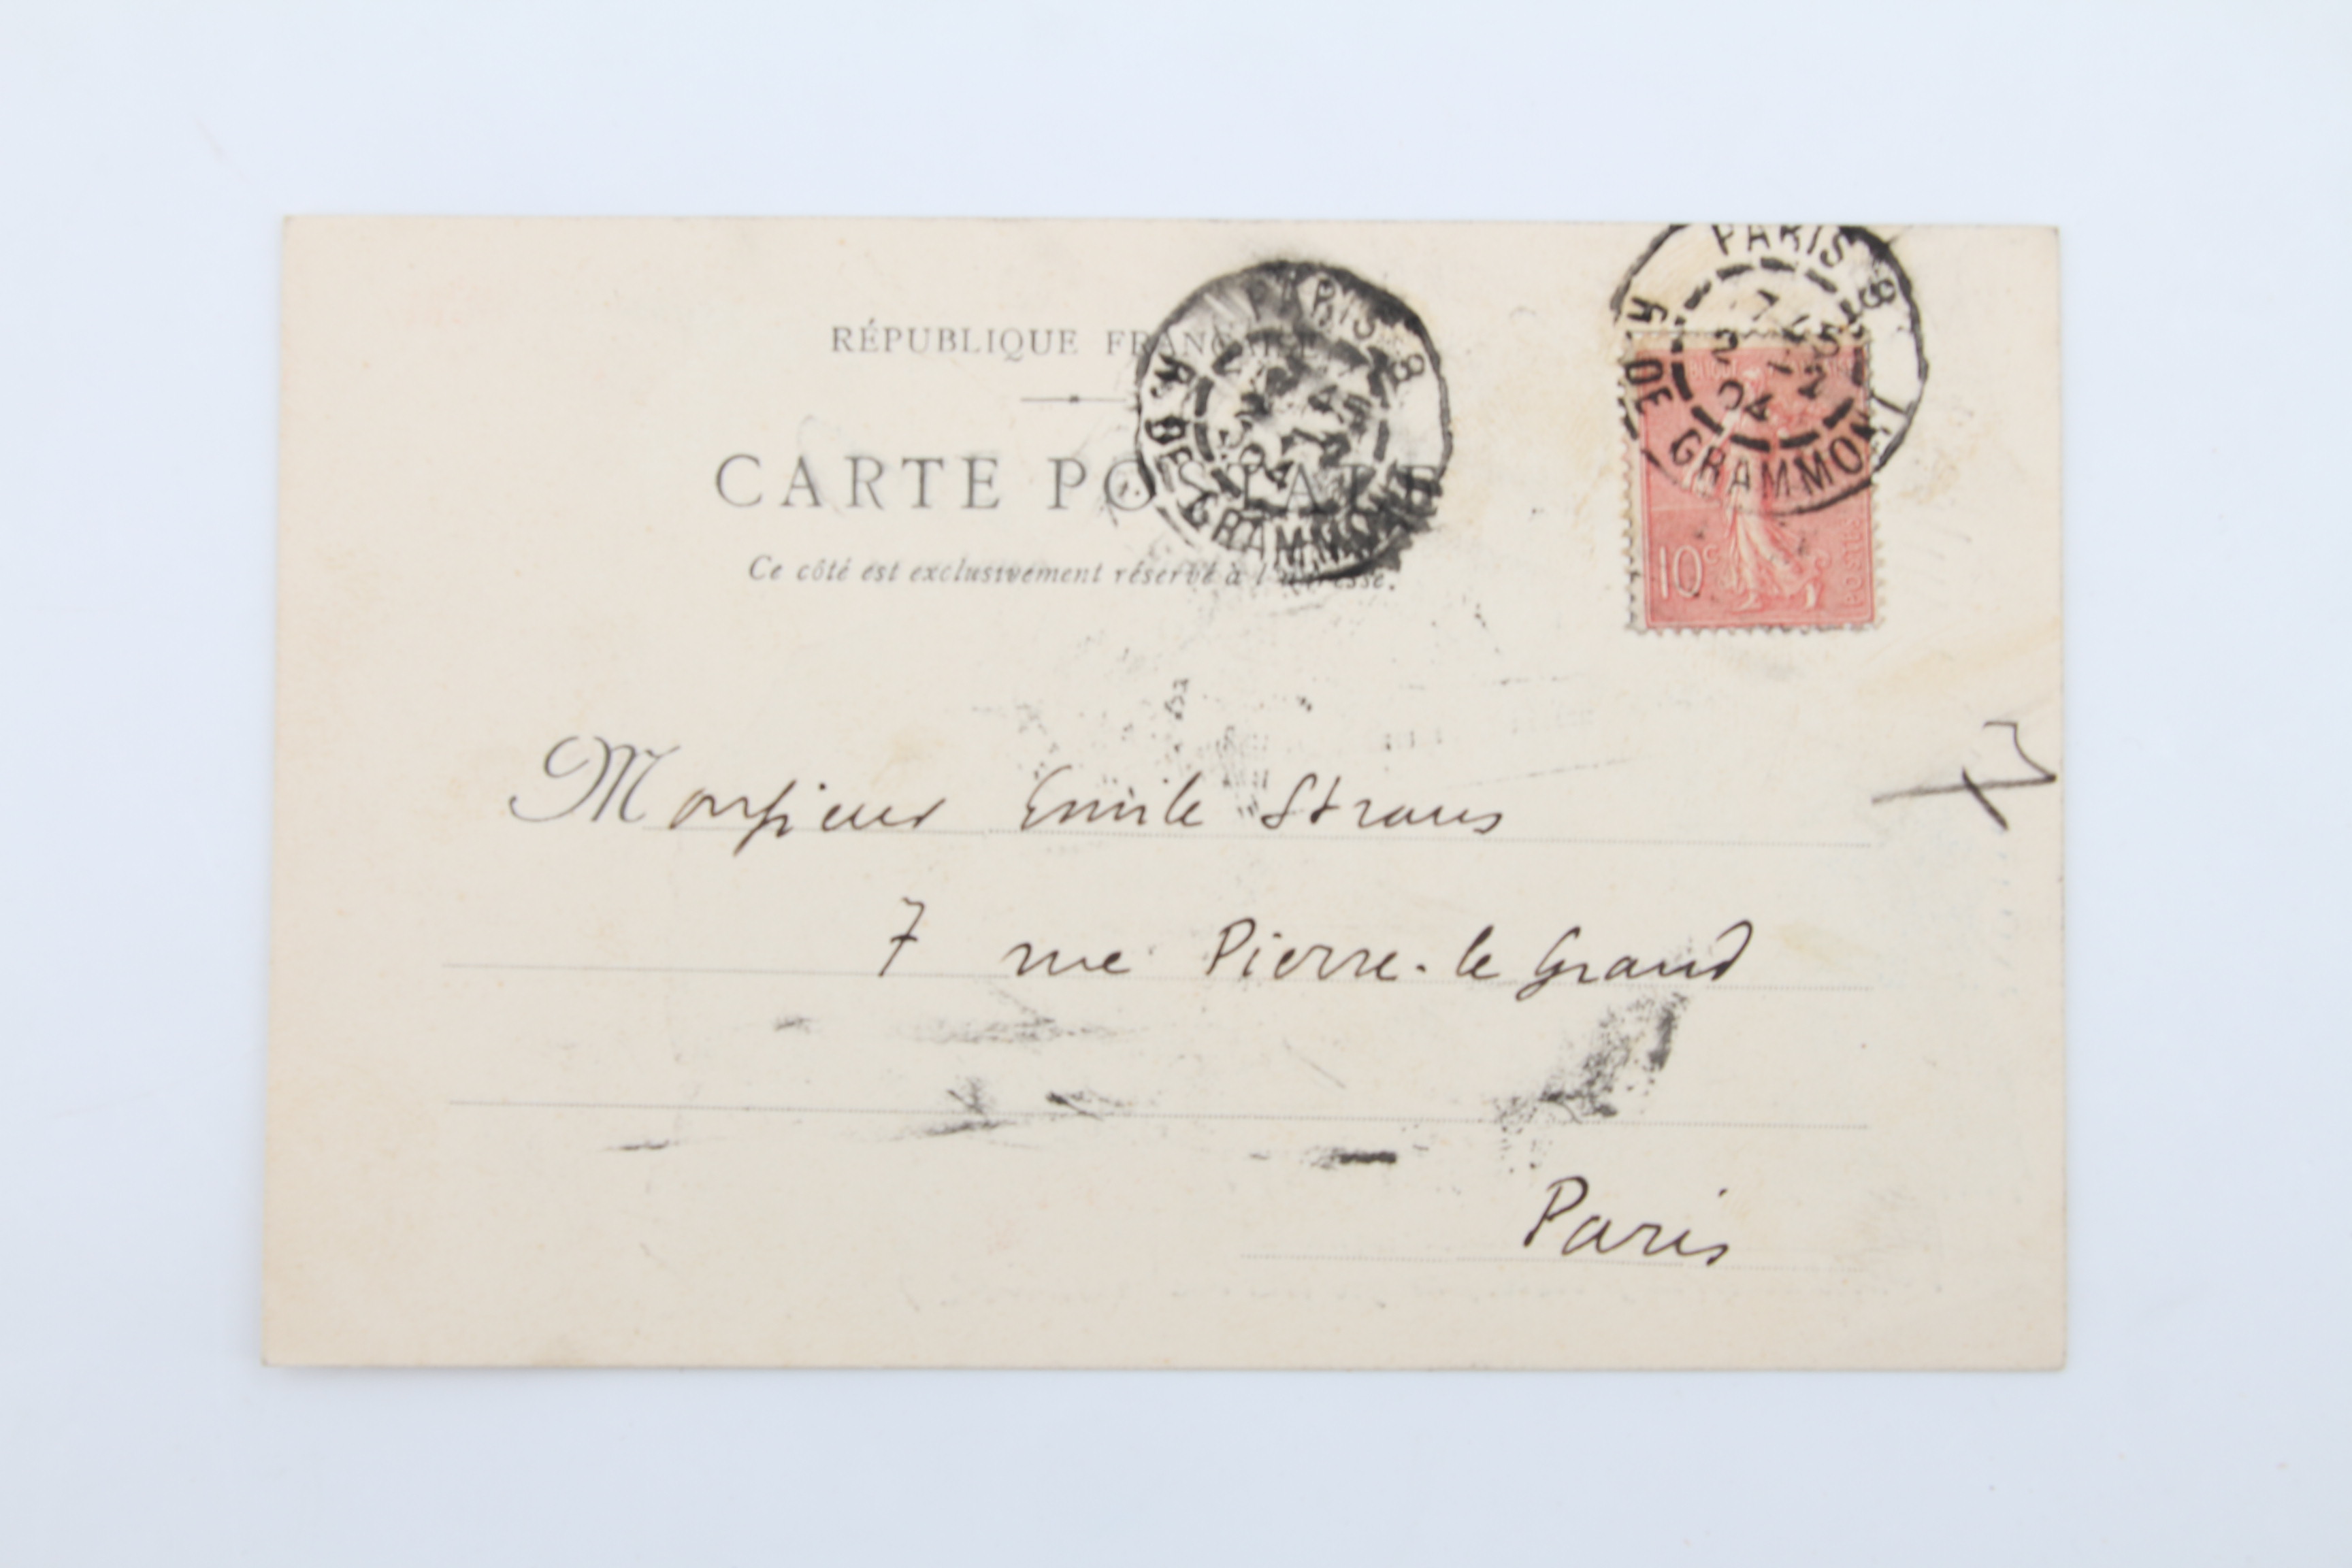 RÉPUBLIQUE FRANÇAISE
CARTE POSTALE
Ce côté est exclusivement réservé à l'adresse.
PARIS 8
R. DE GRAMMONT
PARIS 8
R. DE GRAMMONT
04
10c
POSTES
Monsieur Emile Straus
7 rue Pierre-le Grand
Paris